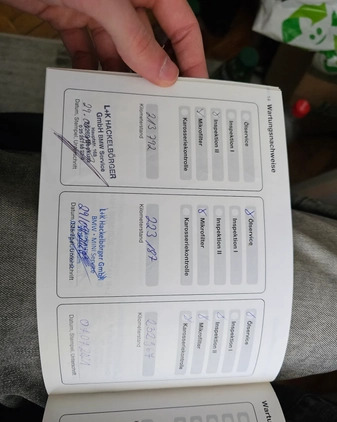 Wartungsnachweise
Ölservice
Inspektion I
Inspektion II
Mikrofilter
Karosseriekontrolle
213 792
Kilometerstand
L+K HACKELBÖRGER
GmbH BMW Service
Datum, Stempel, Unterschrift
Ölservice
Inspektion I
Inspektion II
Mikrofilter
Karosseriekontrolle
223 187
Kilometerstand
L+K Hackelbörger GmbH
BMW - MINI Service
Datum, Stempel, Unterschrift
Ölservice
Inspektion I
Inspektion II
Mikrofilter
Karosseriekontrolle
Kilometerstand
Datum, Stempel, Unterschrift